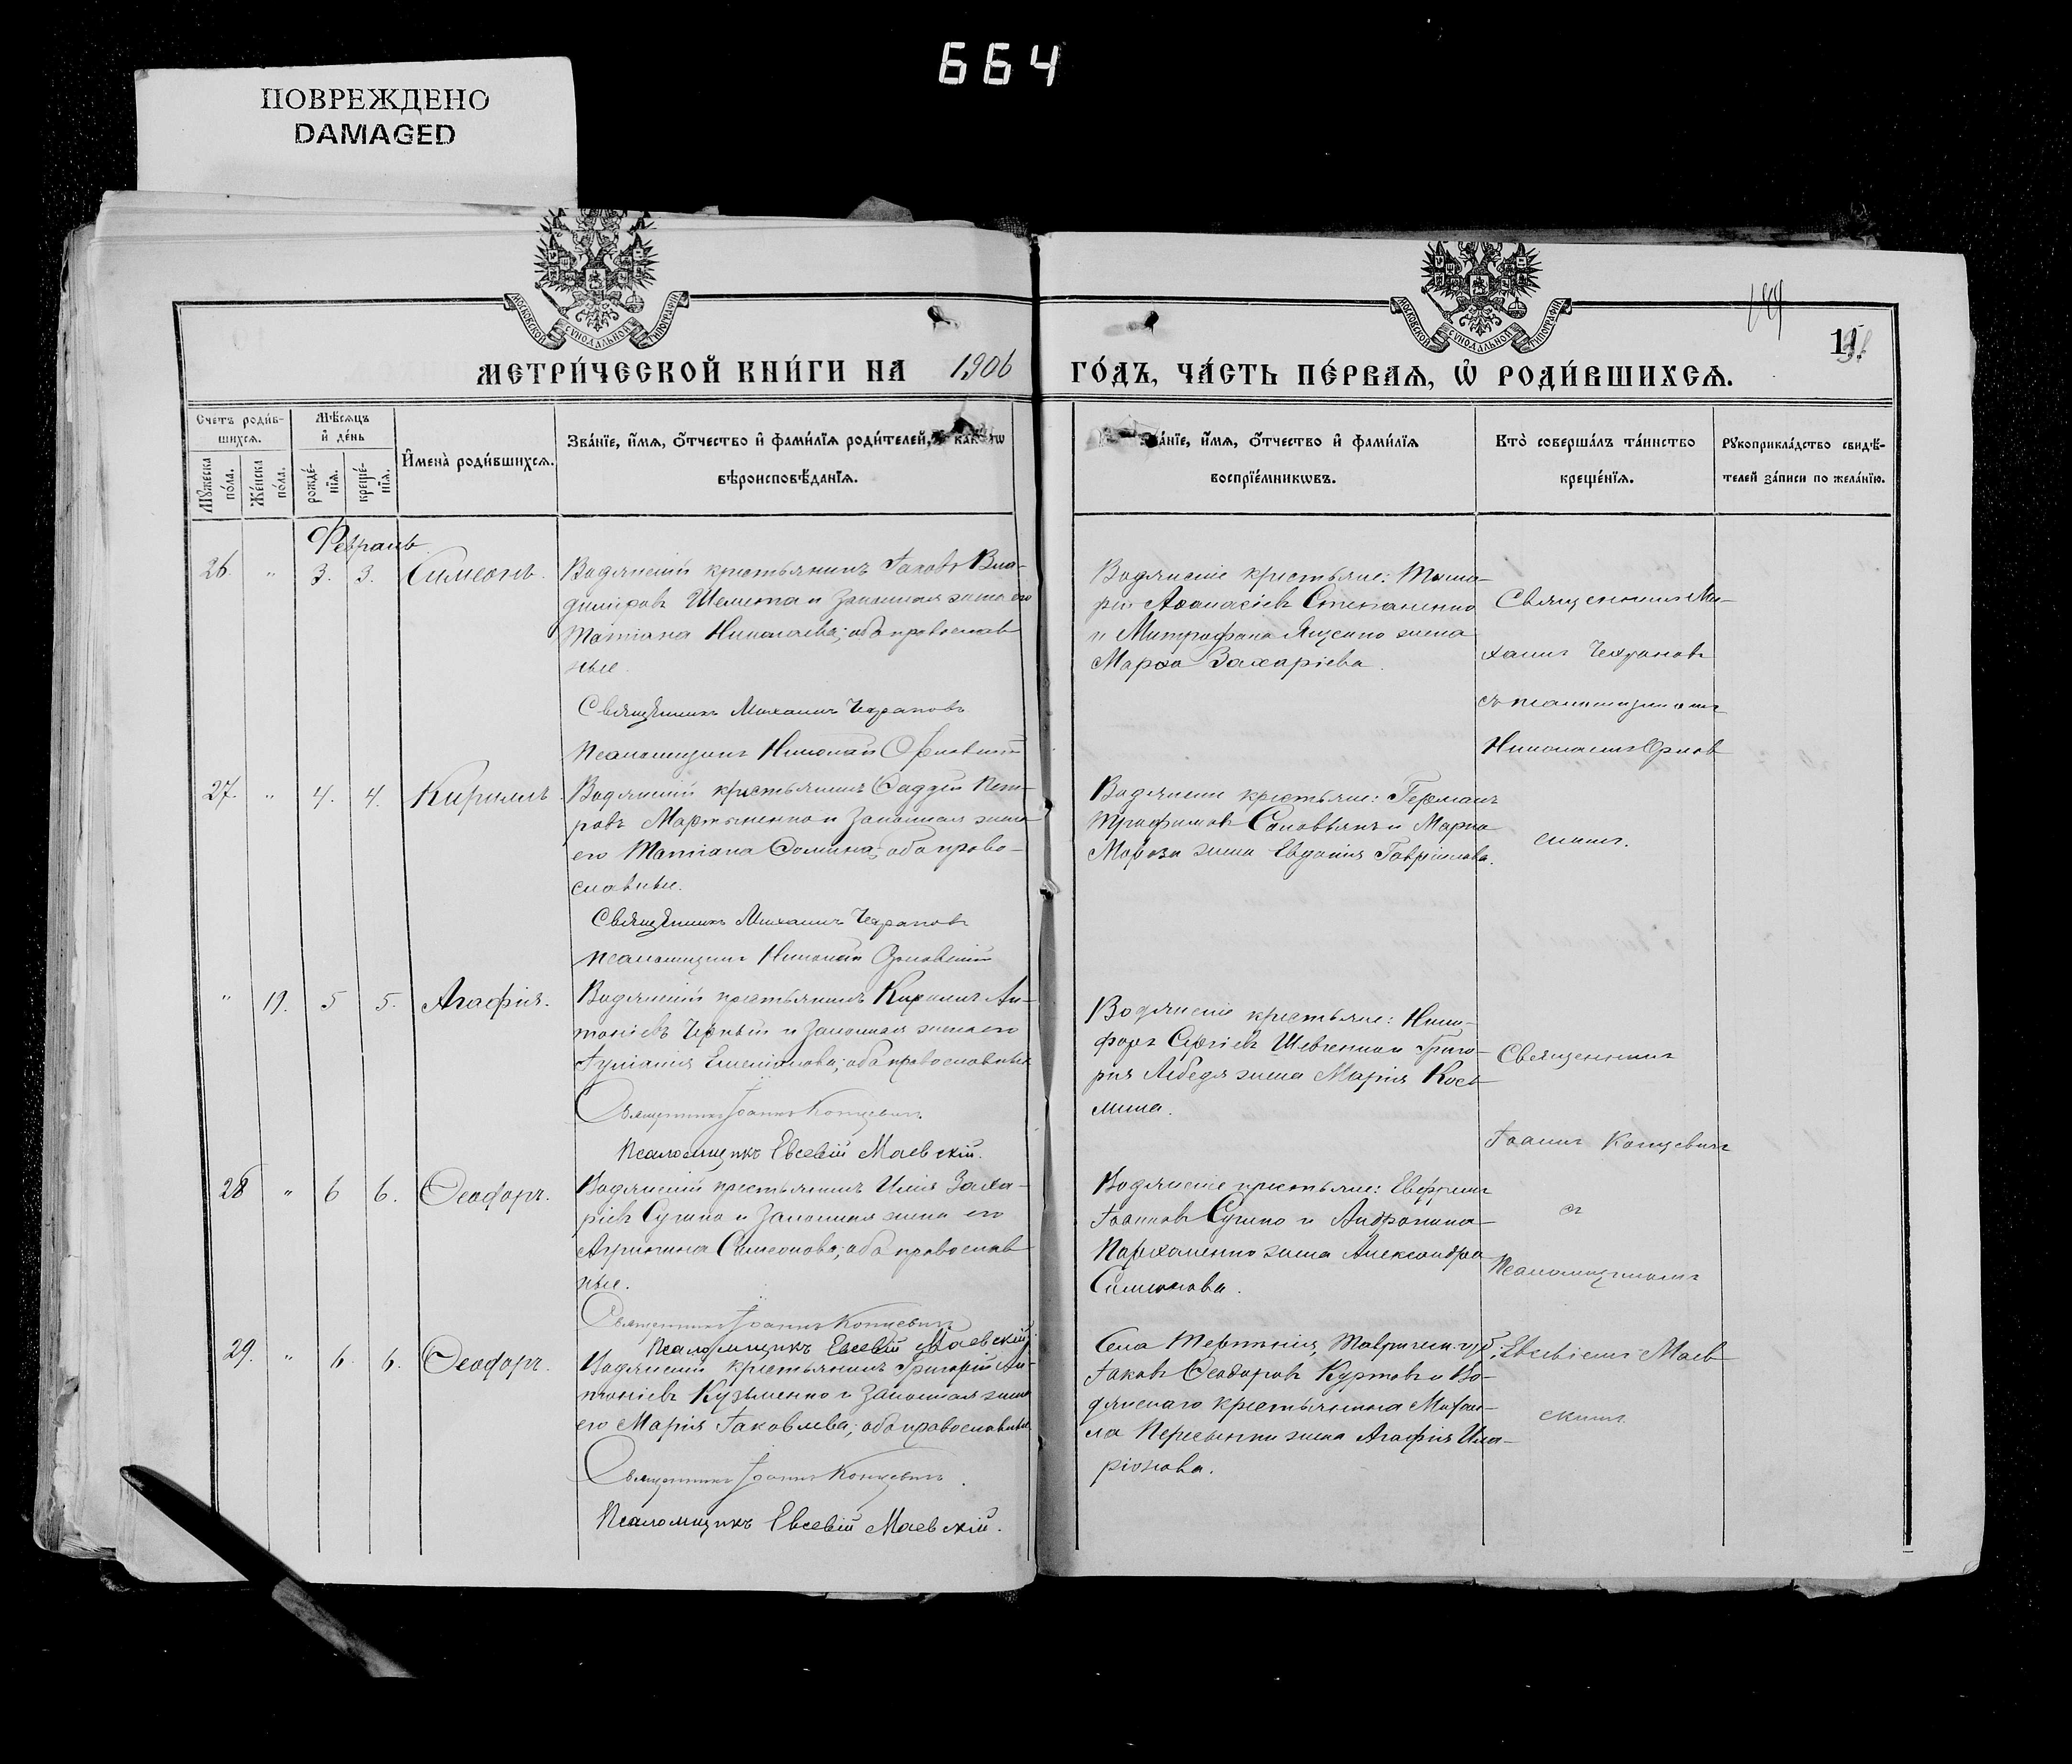 664
ПОВРЕЖДЕНО
DAMAGED
МОСКОВСКОЙ СѴНОДАЛЬНОЙ ТИПОГРАФІИ
МОСКОВСКОЙ СѴНОДАЛЬНОЙ ТИПОГРАФІИ
МЕТРИ́ЧЕСКОЙ КНИ́ГИ НА 1906 ГО́ДЪ, ЧА́СТЬ ПЕ́РВАѦ, Ѡ РОДИ́ВШИХСѦ.
11.
Счетъ роди́в-
шихсѧ.
Мꙋ́жеска по́ла.
Же́нска по́ла.
Мѣ́сѧцъ
и҆ де́нь
рожде́-
нїѧ.
креще́-
нїѧ.
И҆мена̀ роди́вшихсѧ.
Зва́нїе, и҆́мѧ, ѻ҆́тчество и҆ фами́лїѧ роди́телей,
вѣроисповѣ́данїѧ.
Зва́нїе, и҆́мѧ, ѻ҆́тчество и҆ фами́лїѧ
воспрїе́мникѡвъ.
Кто̀ соверша́лъ та́инство
креще́нїѧ.
Рꙋкоприкла́дство свидѣ́-
телей за́писи по жела́нїю.
Февраль
26. " 3. 3. Симеонъ.
Водянскій крестьянинъ Іаковъ Вла-
диміровъ Шемета и законная жена его
Татіана Николаева; оба православ
ные.
Священникъ Михаилъ Чехрановъ
Псаломщикъ Николай Орловскій
Водянскіе крестьяне:
Аѳанасіевъ Степаненко
и Митрофана Яценко жена
Марѳа Захаріева.
Священникъ Ми-
хаилъ Чехрановъ
съ псаломщикомъ
Николаемъ Орлов
27. " 4. 4. Кириллъ.
Водянскій крестьянинъ Ѳаддей Пет-
ровъ Мартыненко и законная жена
его Татіана Ѳомина; оба право-
славные.
Священникъ Михаилъ Чехрановъ
Псаломщикъ Николай Орловскій
Водянскіе крестьяне: Германъ
Трофимовъ Соловьянъ и Марка
Мороза жена Евдокія Гавріилова.
скимъ.
" 19. 5 5. Агафія.
Водянскій крестьянинъ Кириллъ Ан-
тоніевъ Черный и законная жена его
Іуліанія Емеліанова; оба православные
Священникъ Іоаннъ Концевичъ
Псаломщикъ Евсевій Маевскій.
Водянскіе крестьяне: Ники-
форъ Сергіевъ Шевченко и Григо-
рія Лебедя жена Марія Кось-
мина.
Священникъ
Іоаннъ Концевичъ
28 " 6 6. Ѳеодоръ.
Водянскій крестьянинъ Илія Заха-
ріевъ Сугако и законная жена его
Агрипина Симеонова; оба православ
ные.
Священникъ Іоаннъ Концевичъ
Псаломщикъ Евсевій Маевскій.
Водянскіе крестьяне: Евфимъ
Іоанновъ Сугако и Андроника
Пархоменко жена Александра
Симеонова.
съ
Псаломщикомъ
29. " 6. 6. Ѳеодоръ.
Водянскій крестьянинъ Григорій Ан-
тоніевъ Кузьменко и законная жена
его Марія Іаковлева; оба православные
Священникъ Іоаннъ Концевичъ.
Псаломщикъ Евсевій Маевскій.
Села Таврическ. губ.
Іаковъ Ѳеодоровъ Куртовъ и Во-
дянскаго крестьянина Михаи-
ла жена Агафія Ила-
ріонова.
Евсевіемъ Маев
скимъ